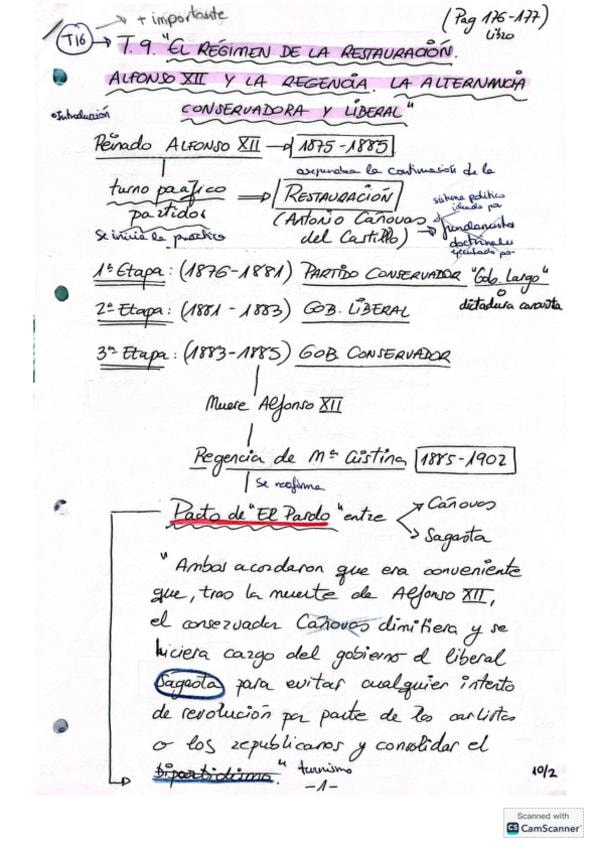 + importante
(Pag 176-177)
libro
T16 → T.9. "EL RÉGIMEN DE LA RESTAURACIÓN.
ALFONSO XII Y LA REGENCIA. LA ALTERNANCIA
CONSERVADORA Y LIBERAL"
Introducción
Reinado ALFONSO XII → 1875-1885
la continuación de la
turno pacífico ⇒ RESTAURACIÓN
sistema político
ideado por
partidos (Antonio Cánovas
fundamentos
del Castillo) →
doctrinales
Se inicia la práctica
ejecutado por
1ª Etapa: (1876-1881) PARTIDO CONSERVADOR "Gob. Largo"
o
dictadura canovista
2ª Etapa: (1881-1883) GOB. LIBERAL
3ª Etapa: (1883-1885) GOB CONSERVADOR
Muere Alfonso XII
Regencia de Mª Cristina 1885-1902
Se reafirma
Pacto de "El Pardo" entre → Cánovas
→ Sagasta
"Ambos acordaron que era conveniente
que, tras la muerte de Alfonso XII,
el conservador Cánovas dimitiera y se
hiciera cargo del gobierno el liberal
Sagasta para evitar cualquier intento
de revolución por parte de los carlistas
o los republicanos y consolidar el
bipartidismo." turnismo
10/2
-1-
Scanned with
CS CamScanner